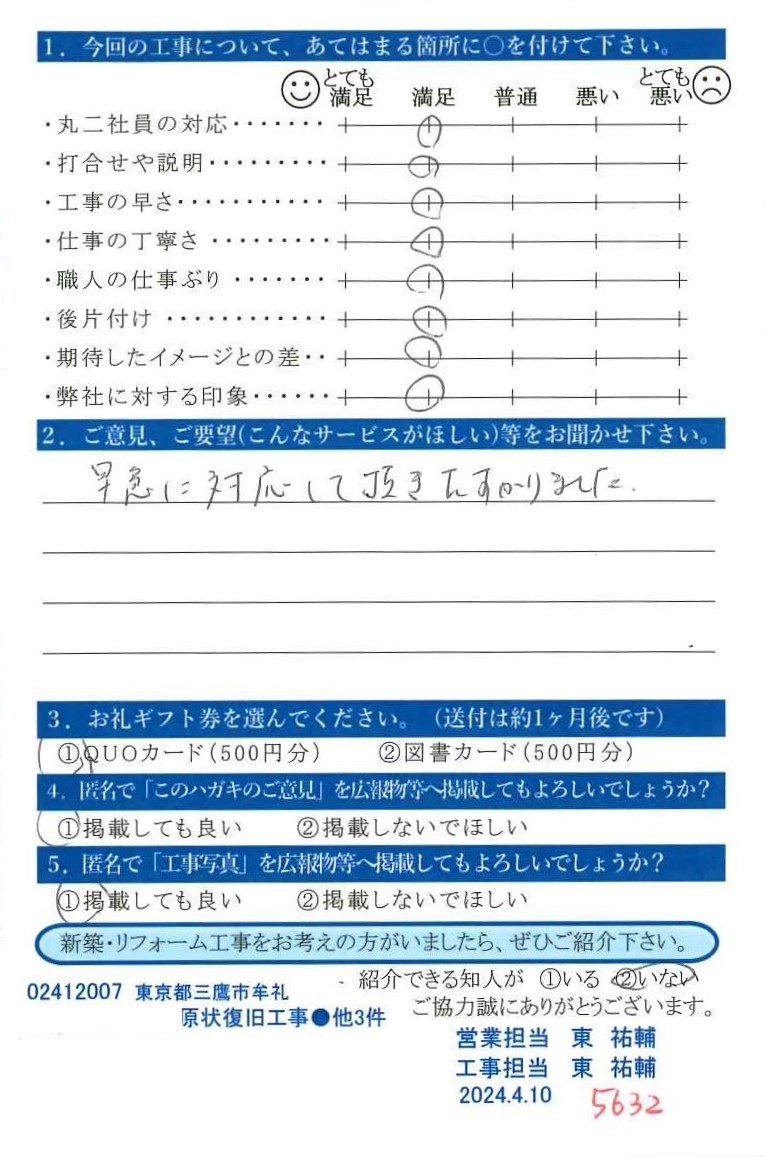 1．今回の工事について、あてはまる箇所に○を付けて下さい。
とても満足 満足 普通 悪い とても悪い
・丸二社員の対応・・・・・・・
・打合せや説明・・・・・・・・・
・工事の早さ・・・・・・・・・・・
・仕事の丁寧さ・・・・・・・・・
・職人の仕事ぶり・・・・・・・
・後片付け・・・・・・・・・・・・
・期待したイメージとの差・・
・弊社に対する印象・・・・・・
2．ご意見、ご要望(こんなサービスがほしい)等をお聞かせ下さい。
早急に対応して頂きたすかりました.
3．お礼ギフト券を選んでください。（送付は約1ヶ月後です）
①QUOカード(500円分) ②図書カード(500円分)
4．匿名で「このハガキのご意見」を広報物等へ掲載してもよろしいでしょうか？
①掲載しても良い ②掲載しないでほしい
5．匿名で「工事写真」を広報物等へ掲載してもよろしいでしょうか？
①掲載しても良い ②掲載しないでほしい
新築・リフォーム工事をお考えの方がいましたら、ぜひご紹介下さい。
紹介できる知人が ①いる ②いない
02412007 東京都三鷹市牟礼
ご協力誠にありがとうございます。
原状復旧工事●他3件
営業担当 東 祐輔
工事担当 東 祐輔
2024.4.10
5632